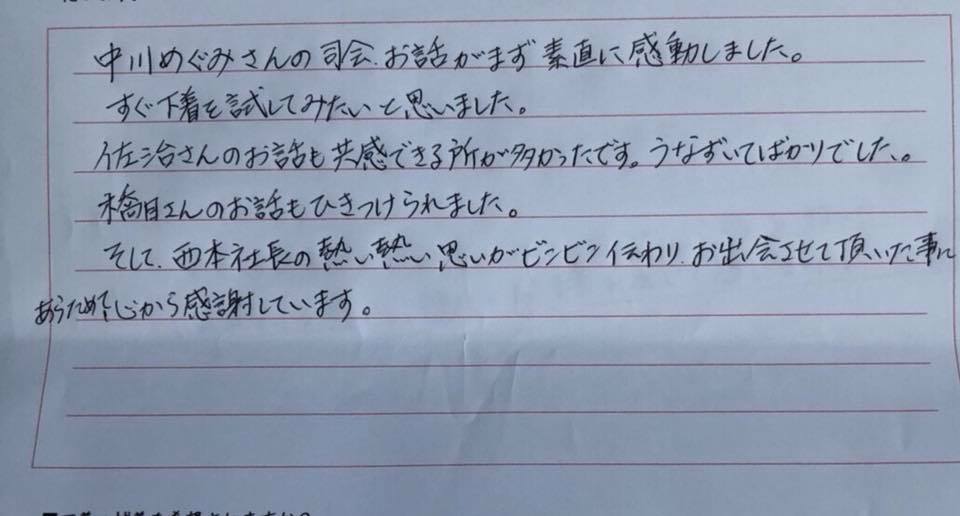 中川めぐみさんの司会、お話がまず素直に感動しました。
すぐ下着を試してみたいと思いました。
佐治さんのお話も共感できる所が多かったです。うなずいてばかりでした。
橋目さんのお話もひきつけられました。
そして、西本社長の熱い熱い思いがビンビン伝わり、お出会させて頂いた事に
あらためて心から感謝しています。